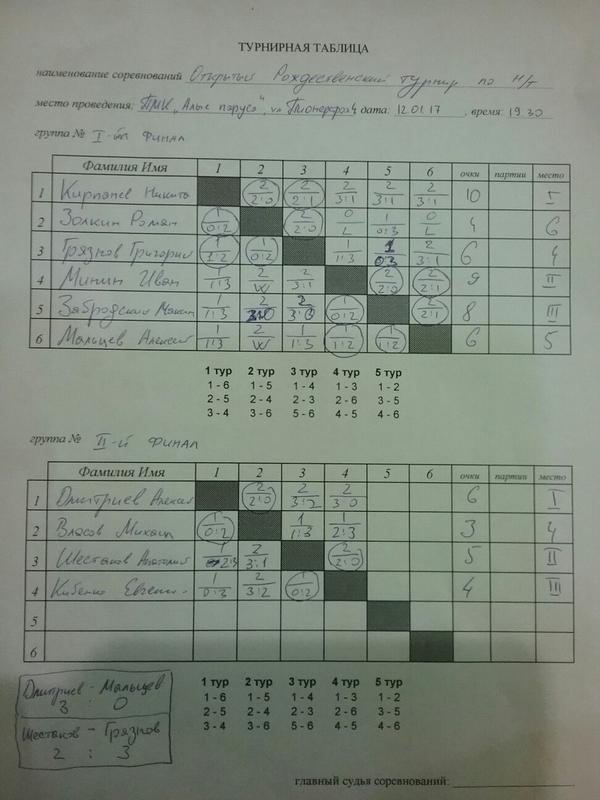 ТУРНИРНАЯ ТАБЛИЦА
наименование соревнований Открытый Рождественский турнир по н/т
место проведения: ПМК „Алые паруса", дата: 12.01.17, время: 19 30
группа № I-ый ФИНАЛ
Фамилия Имя 1 2 3 4 5 6 очки партии место
1 Никита 2 2:0 2 2:1 2 3:1 2 3:1 2 3:1 10 I
2 Золкин Роман 1 0:2 2 2:0 0 L 1 0:3 0 L 4 6
3 Грязнов Григорий 1 1:2 1 0:2 1 1:3 1 0:3 2 3:1 6 4
4 Минин Иван 1 1:3 2 W 2 3:1 2 2:0 2 2:1 9 II
5 Забродский Максим 1 1:3 2 3:0 2 3:0 1 0:2 2 2:1 8 III
6 Мальцев Алексей 1 1:3 2 W 1 1:3 1 1:2 1 1:2 6 5
1 тур 2 тур 3 тур 4 тур 5 тур
1 - 6 1 - 5 1 - 4 1 - 3 1 - 2
2 - 5 2 - 4 2 - 3 2 - 6 3 - 5
3 - 4 3 - 6 5 - 6 4 - 5 4 - 6
группа № II-й ФИНАЛ
Фамилия Имя 1 2 3 4 5 6 очки партии место
1 Дмитриев Алексей 2 2:0 2 3:2 2 3:0 6 I
2 Власов Михаил 1 0:2 1 1:3 1 2:3 3 4
3 Шестаков Анатолий 1 2:3 2 3:1 2 2:0 5 II
4 Евгений 1 0:3 2 3:2 1 0:2 4 III
5
6
1 тур 2 тур 3 тур 4 тур 5 тур
1 - 6 1 - 5 1 - 4 1 - 3 1 - 2
2 - 5 2 - 4 2 - 3 2 - 6 3 - 5
3 - 4 3 - 6 5 - 6 4 - 5 4 - 6
Дмитриев - Мальцев
3 : 0
Шестаков - Грязнов
2 : 3
главный судья соревнований: